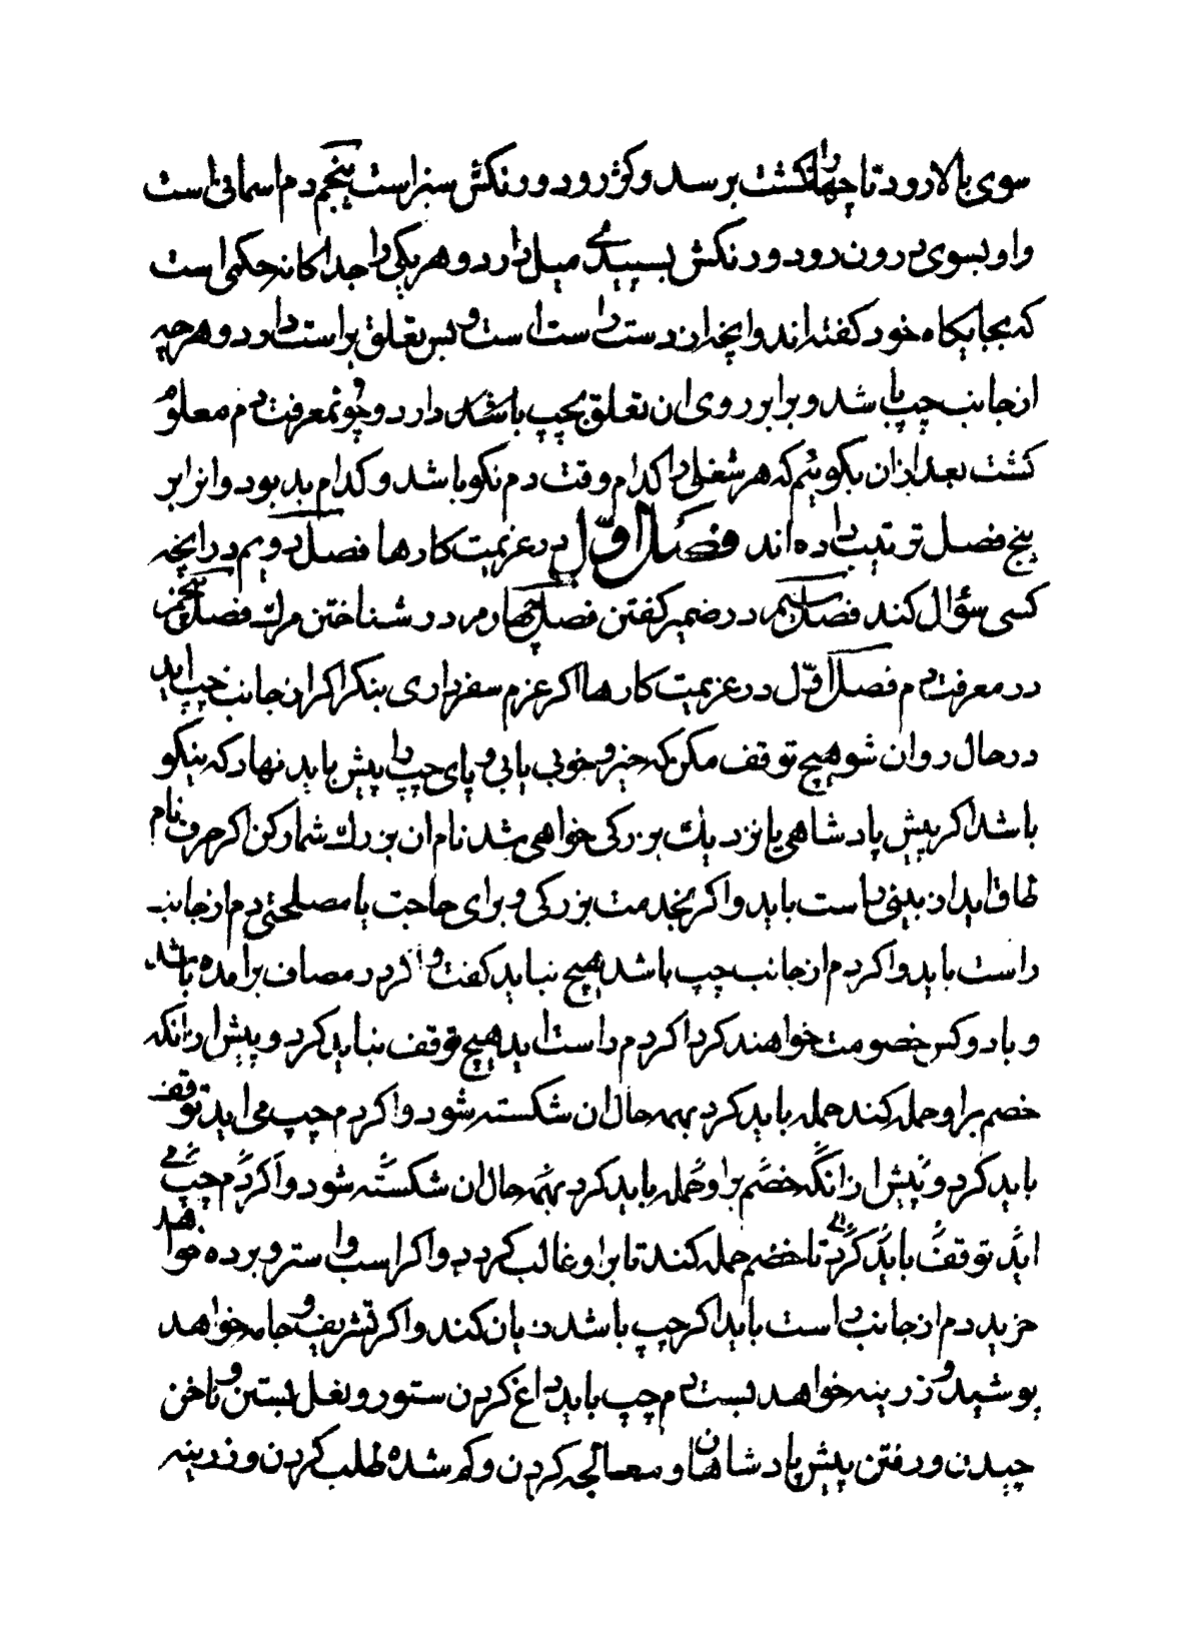 سوی بالا رود تا چهار انکشت برسد و کوژ رود و رنکش سبز است پنجم دم اسمانی است
و او بسوی درون رود و رنکش بسپیدی میل دارد و هر یکی را جدا کانه حکمی است
که بجایکاه خود کفته اند و انچه ازان دست راست است و پس تعلق براست دارد و هرچه
از جانب چپ باشد و برابر روی ان تعلق بچپ باشد دارد و چون معرفت دم معلوم
کشت بعد ازان بکوئیم که هر شغلی را کدام وقت دم نکو باشد و کدام بد بود و انرا بر
پنج فصل ترتیب داده اند فصل اوّل در عزیمت کارها فصل دویم در انچه
کسی سؤال کند فصل سیم در ضمیر کفتن فصل چهارم در شناختن مرک فصل پنجم
در معرفت دم فصل اوّل در عزیمت کارها اکر عزم سفر داری بنکر اکر از جانب چپ اید
در حال روان شو هیچ توقف مکن که خیر و خوبی یابی و پای چپ را پیش باید نهاد که نیکو
باشد اکر پیش پادشاهی یا نزدیك بزرکی خواهی شد نام ان بزرك شمار کن اکر حرف نام
طاق اید از بینی راست باید و اکر بخدمت بزرکی و برای حاجت یا مصلحتی دم از جانب
راست باید و اکر دم از جانب چپ باشد هیچ نباید کفت و اکر در مصاف برامده باشد
و با دو کس خصومت خواهند کرد اکر دم راست اید هیچ توقف نباید کرد و پیش ازانکه
خصم بر او حمله کند حمله باید کرد بهمه حال ان شکسته شود و اکر دم چپ می اید توقف
باید کرد و پیش ازانکه خصم بر او حمله باید کرد بهمه حال ان شکسته شود و اکر دم چپ می
اید توقف باید کرد تا خصم حمله کند تا بر او غالب کردد و اکر اسب و استر و برده خواهد
خرید دم از جانب راست باید اکر چپ باشد زیان کند و اکر تشریف و جامه خواهد
پوشید و زرینه خواهد بست دم چپ باید داغ کردن ستور و نعل بستن و ناخن
چیدن و رفتن پیش پادشاهان و معالجه کردن و کم شده طلب کردن و زرینه